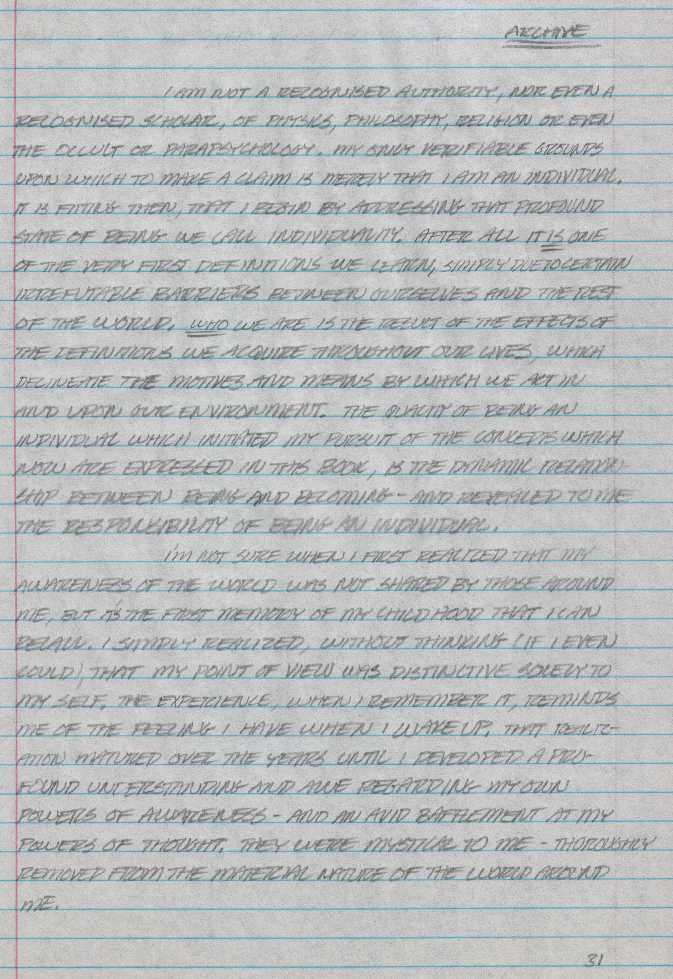 ARCHIVE
I AM NOT A RECOGNISED AUTHORITY, NOR EVEN A
RECOGNISED SCHOLAR, OF PHYSICS, PHILOSOPHY, RELIGION OR EVEN
THE OCCULT OR PARAPSYCHOLOGY. MY ONLY VERIFIABLE GROUNDS
UPON WHICH TO MAKE A CLAIM IS MERELY THAT I AM AN INDIVIDUAL.
IT IS FITTING THEN, THAT I BEGIN BY ADDRESSING THAT PROFOUND
STATE OF BEING WE CALL INDIVIDUALITY. AFTER ALL IT IS ONE
OF THE VERY FIRST DEFINITIONS WE LEARN, SIMPLY DUE TO CERTAIN
IRREFUTABLE BARRIERS BETWEEN OURSELVES AND THE REST
OF THE WORLD. WHO WE ARE IS THE RESULT OF THE EFFECTS OF
THE DEFINITIONS WE ACQUIRE THROUGHOUT OUR LIVES, WHICH
DELINEATE THE MOTIVES AND MEANS BY WHICH WE ACT IN
AND UPON OUR ENVIRONMENT. THE QUALITY OF BEING AN
INDIVIDUAL WHICH INITIATED MY PURSUIT OF THE CONCEPTS WHICH
NOW ARE EXPRESSED IN THIS BOOK, IS THE DYNAMIC RELATION-
SHIP BETWEEN BEING AND BECOMING - AND REVEALED TO ME
THE RESPONSIBILITY OF BEING AN INDIVIDUAL.
I'M NOT SURE WHEN I FIRST REALIZED THAT MY
AWARENESS OF THE WORLD WAS NOT SHARED BY THOSE AROUND
ME, BUT IT'S THE FIRST MEMORY OF MY CHILDHOOD THAT I CAN
RECALL. I SIMPLY REALIZED, WITHOUT THINKING (IF I EVEN
COULD), THAT MY POINT OF VIEW WAS DISTINCTIVE SOLELY TO
MY SELF. THE EXPERIENCE, WHEN I REMEMBER IT, REMINDS
ME OF THE FEELING I HAVE WHEN I WAKE UP. THAT REALIZ-
ATION MATURED OVER THE YEARS UNTIL I DEVELOPED A PRO-
FOUND UNDERSTANDING AND AWE REGARDING MY OWN
POWERS OF AWARENESS - AND AN AVID BAFFLEMENT AT MY
POWERS OF THOUGHT. THEY WERE MYSTICAL TO ME - THOROUGHLY
REMOVED FROM THE MATERIAL NATURE OF THE WORLD AROUND
ME.
31